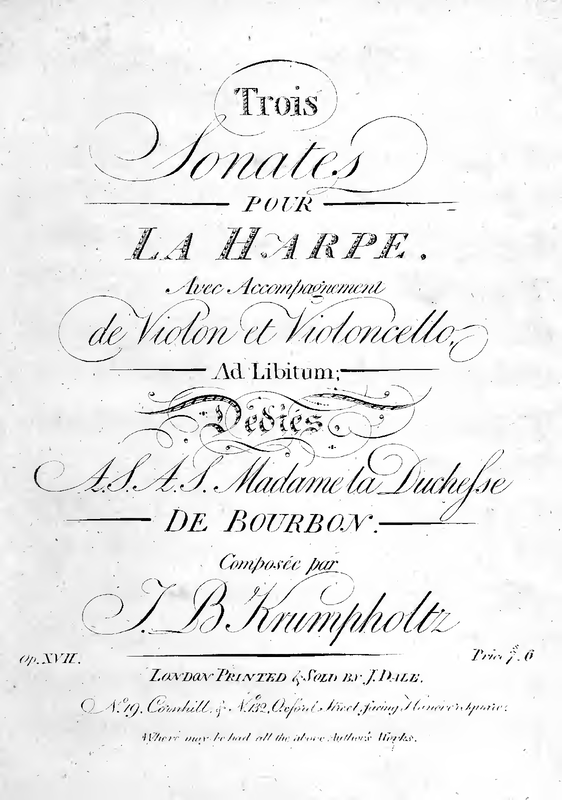 Trois
Sonates
POUR
LA HARPE.
Avec Accompagnement
de Violon et Violoncello,
Ad Libitum;
Dédiés,
A.S.A.S. Madame la Duchesse
DE BOURBON.
Composée par
J. B. Krumpholtz
Op. XVII.
Price 7s. 6
LONDON PRINTED & SOLD BY J. DALE.
No. 19, Cornhill, & No. 132, Oxford Street, facing Hanover Square;
Where may be had all the above Author's Works.